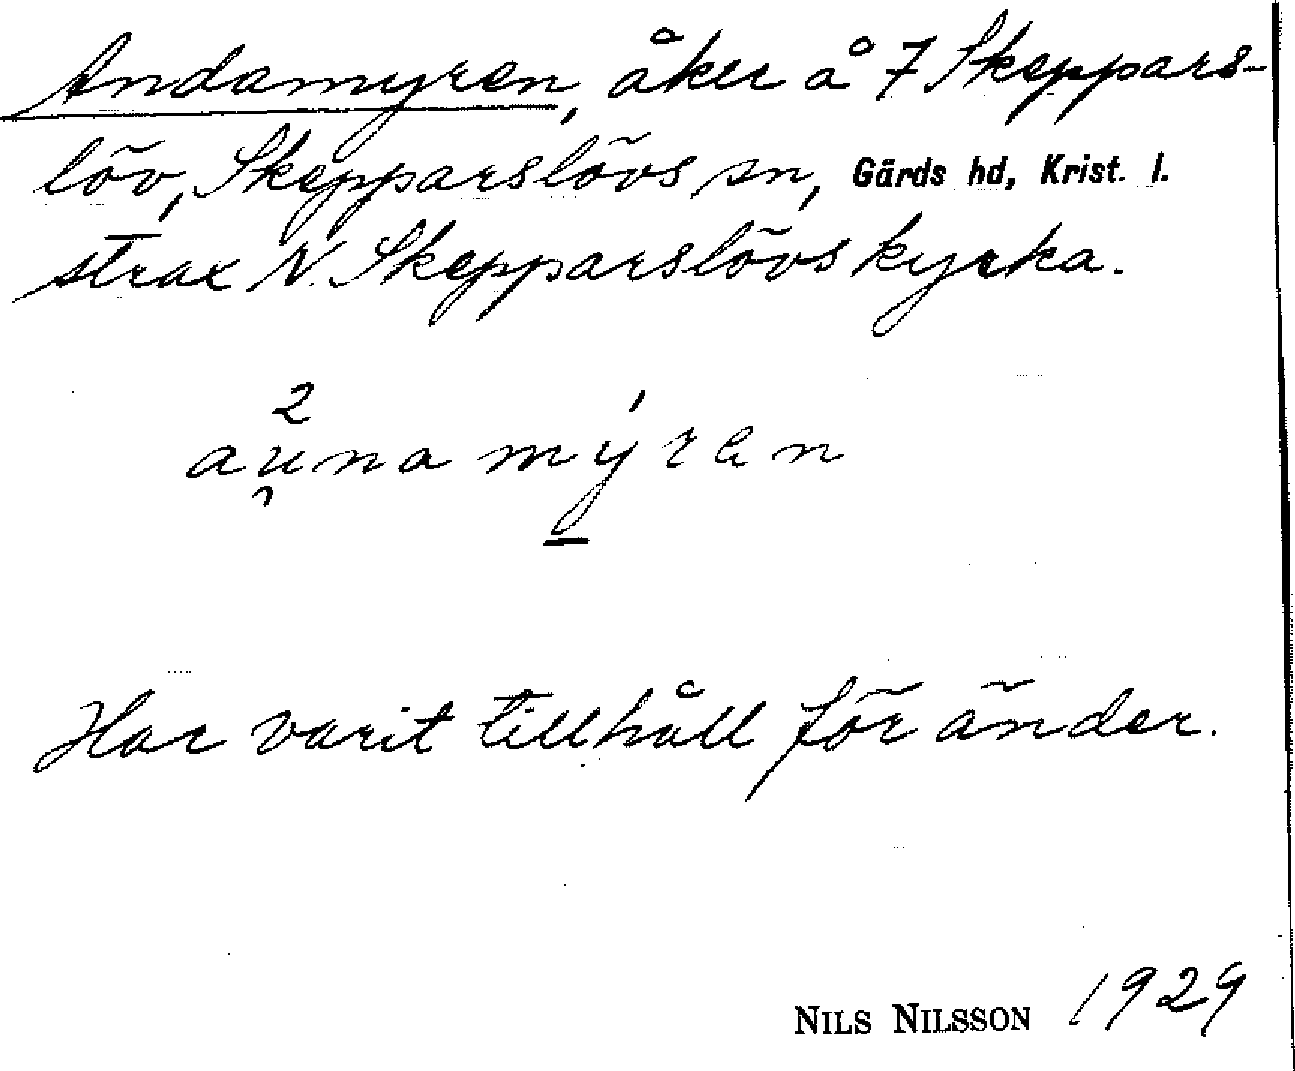 Andamyren, åker å 7 Skeppars-
löv, Skepparslövs sn, Gärds hd, Krist. l.
strax N. Skepparslövs kyrka.
Har varit tillhåll för änder.
NILS NILSSON 1929